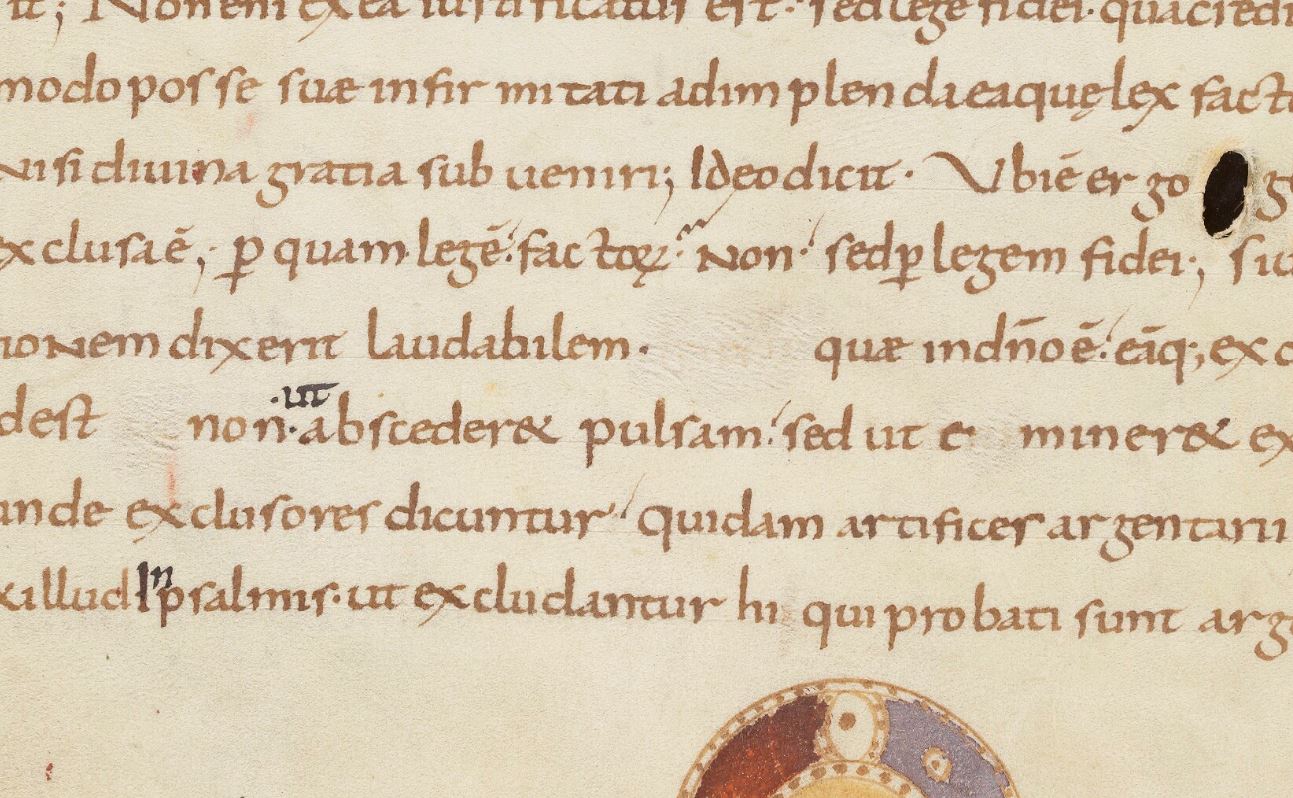 it; Non eni ex ea iustificatus est. sed lege fidei. qua credi
modo posse suæ infirmitati adimplenda ea quę lex facto
Nisi diuina gratia subueniri; Ideo dicit. Vbi ē ergo g
exclusa ē; ꝑ quam legē. factoꝝ. Non. sed ꝑ legem fidei; siu
ionem dixerit laudabilem. quæ in dn̄o ē. eāq; ex c
dest non. ut abscederet pulsam. sed ut e mineret ex
unde exclusores dicuntur quidam artifices argentarii
x illud In psalmis. ut excludantur hi qui probati sunt arg